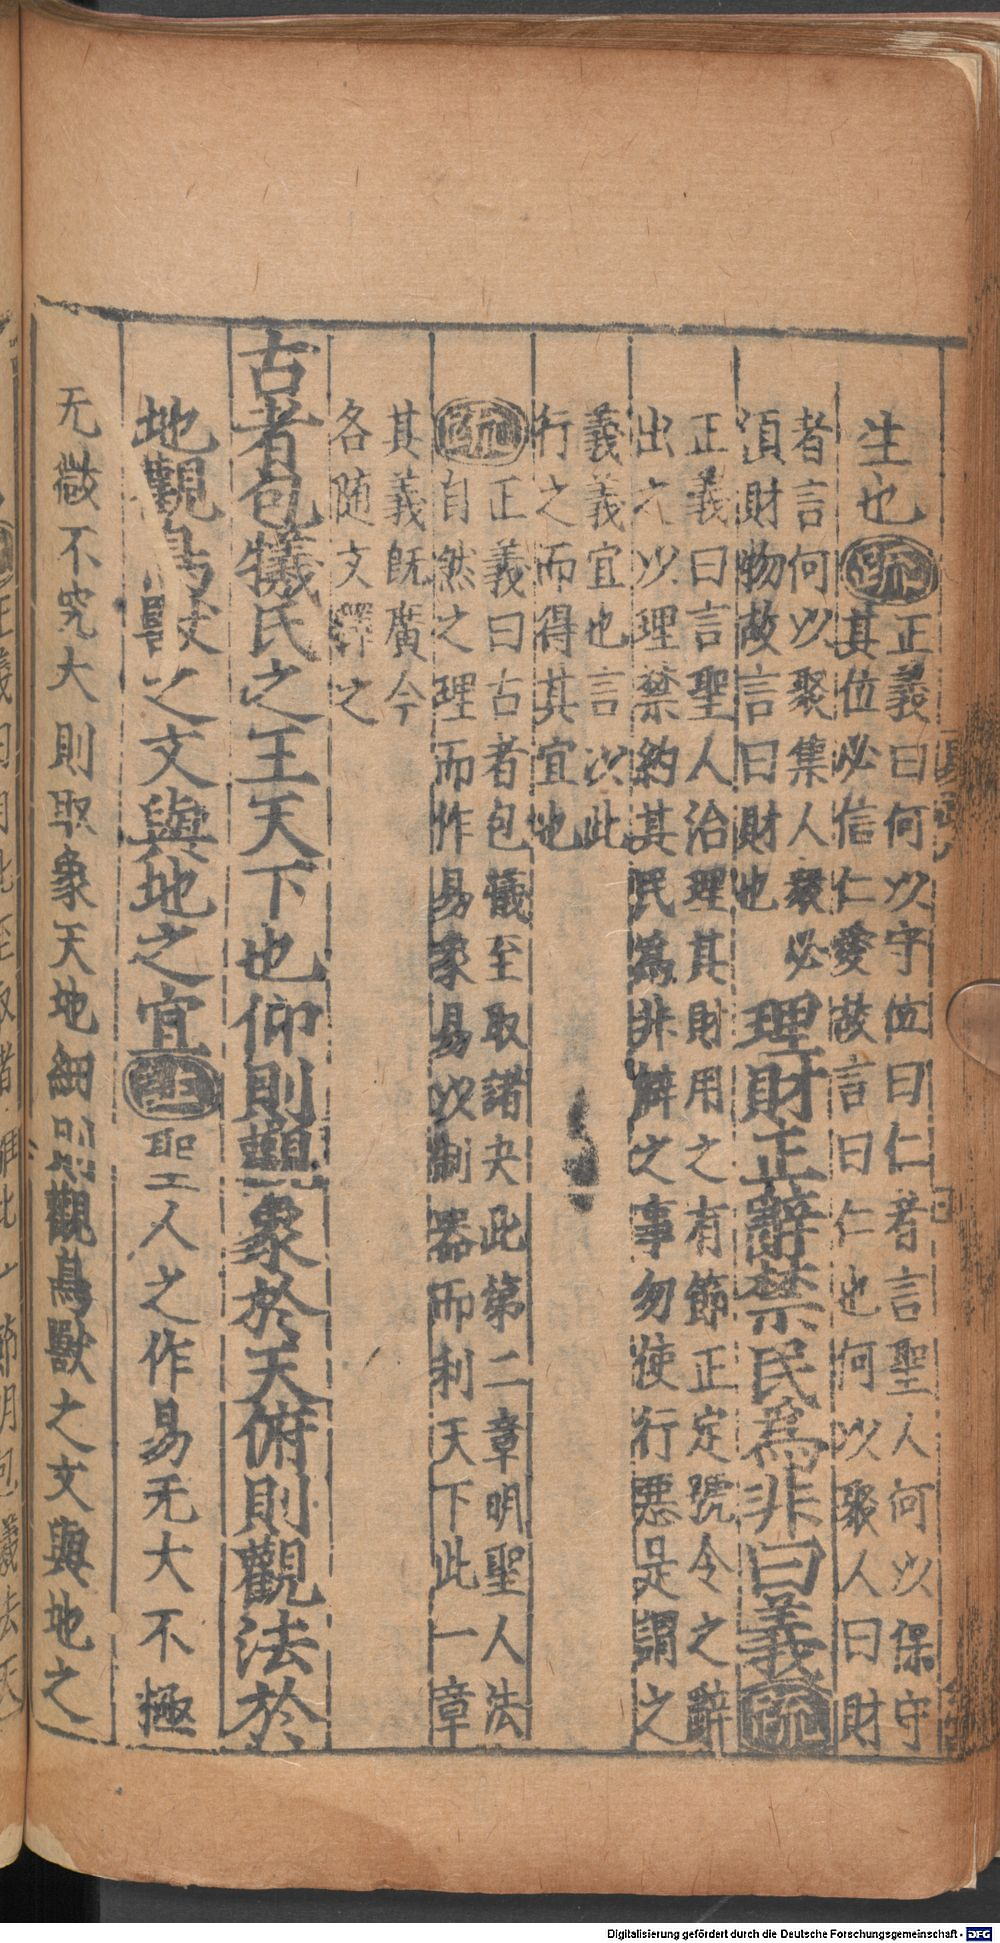 生也疏正義曰何以守位曰仁者言聖人何以保守
其位必信仁愛故言曰仁也何以聚人曰財
者言何以聚集人衆必
湏財物故言曰財也
理財正辭禁民爲非曰義疏
正義曰言聖人治理其財用之有節正定號令之辭
出之以理禁約其民爲非僻之事勿使行惡是謂之
義義宜也言以此
行之而得其宜也
疏正義曰古者包犧至取諸夬此第二章明聖人法
自然之理而作易象易以制器而利天下此一章
其義旣廣今
各随文釋之
古者包犧氏之王天下也仰則觀象於天俯則觀法於
地觀鳥獸之文與地之宜注聖人之作易无大不極
无微不究大則取象天地細則觀鳥獸之文與地之
Digitalisierung gefördert durch die Deutsche Forschungsgemeinschaft - DFG